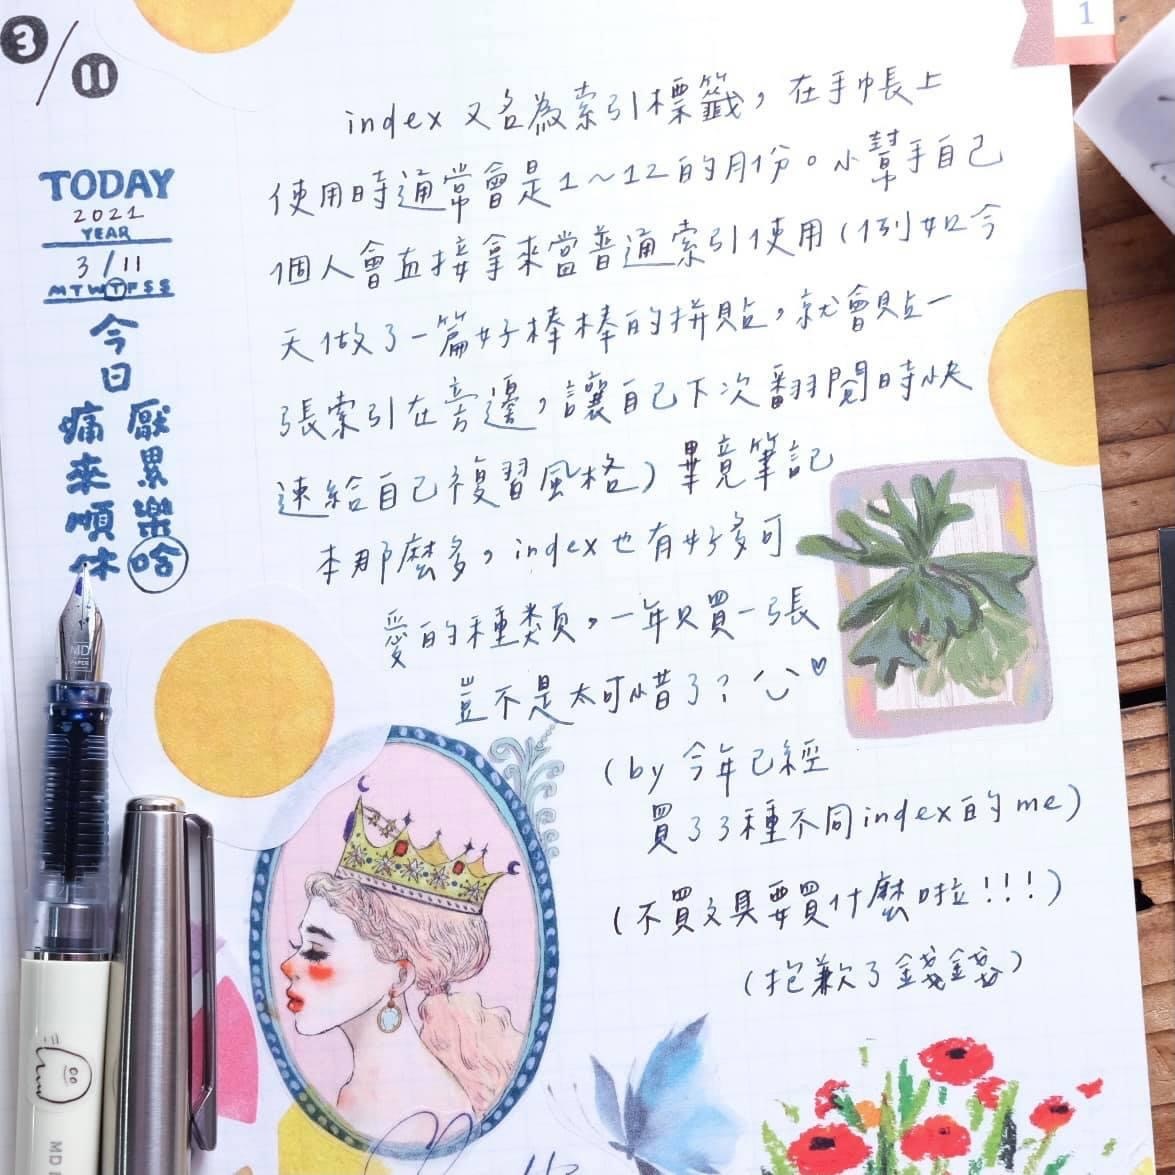 3/11
TODAY
2021
YEAR
3/11
MTWTFSS
今日
痛 厭
來 累
順 樂
休 啥
1
index 又名為索引標籤，在手帳上
使用時通常會是1～12的月份。小幫手自己
個人會直接拿來當普通索引使用(例如今
天做了一篇好棒棒的拼貼，就會貼一
張索引在旁邊，讓自己下次翻閱時快
速給自己複習風格)畢竟筆記
本那麼多，index也有好多可
愛的種類，一年只買一張
豈不是太可惜了?
(by 今年已經
買了3種不同index的me)
(不買文具要買什麼啦!!!)
(抱歉了錢錢)
MD
PAPER
MD